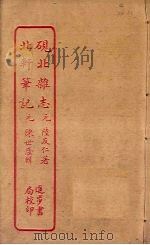 硯北雜志 元 陸友仁著
北軒筆記 元 陳世隆輯
進步書
局校印